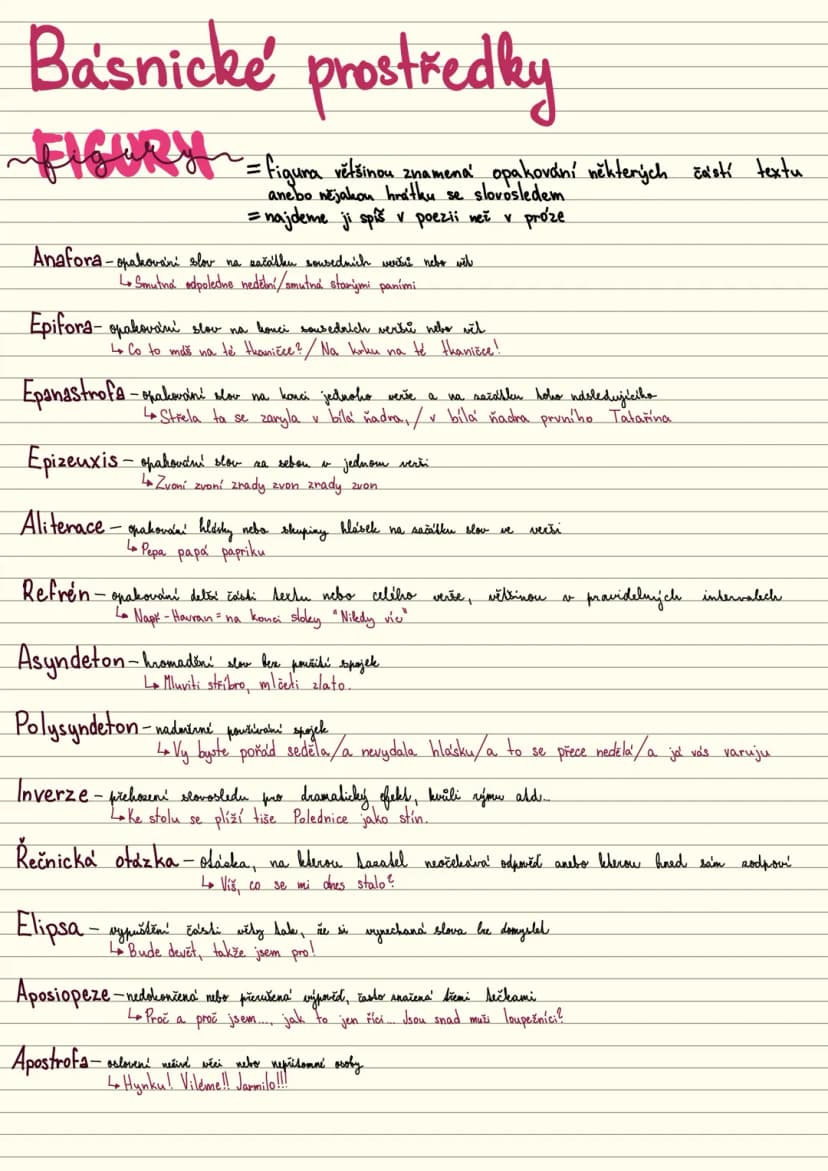 Básnické prostředky
FIGURY
figury
= figura většinou znamená opakování některých částí textu
anebo nějakou hrátku se slovosledem
= najdeme ji spíš v poezii než v próze
Anafora - opakování slov na začátku sousedních veršů nebo vět
↳ Smutná odpoledne nedělní/smutná starými paními
Epifora - opakování slov na konci sousedních veršů nebo vět
↳ Co to máš na té tkaničce? / Na krku na té tkaničce!
Epanastrofa - opakování slov na konci jednoho verše a na začátku toho následujícího
↳ Střela ta se zaryla v bílá ňadra, / v bílá ňadra prvního Tatařína
Epizeuxis - opakování slov za sebou v jednom verši
↳ Zvoní zvoní zrady zvon zrady zvon
Aliterace - opakování hlásky nebo skupiny hlásek na začátku slov ve verši
↳ Pepa papá papriku
Refrén - opakování delší části textu nebo celého verše, většinou v pravidelných intervalech
↳ Např - Havran = na konci sloky "Nikdy víc"
Asyndeton - hromadění slov bez použití spojek
↳ Mluviti stříbro, mlčeti zlato.
Polysyndeton - nadměrné používání spojek
↳ Vy byste pořád seděla/a nevydala hlásku/a to se přece nedělá/a já vás varuju
Inverze - přehození slovosledu pro dramatický efekt, kvůli rýmu atd...
↳ Ke stolu se plíží tiše Polednice jako stín.
Řečnická otázka - otázka, na kterou tazatel neočekává odpověď anebo kterou hned sám zodpoví
↳ Víš, co se mi dnes stalo?
Elipsa - vypuštění části věty tak, že si vynechaná slova lze domyslet
↳ Bude devět, takže jsem pro!
Aposiopeze - nedokončená nebo přerušená výpověď, často značená třemi tečkami
↳ Proč a proč jsem..., jak to jen říci... Jsou snad muži loupežníci?
Apostrofa - oslovení neživé věci nebo nepřítomné osoby
↳ Hynku! Viléme!! Jarmilo!!!